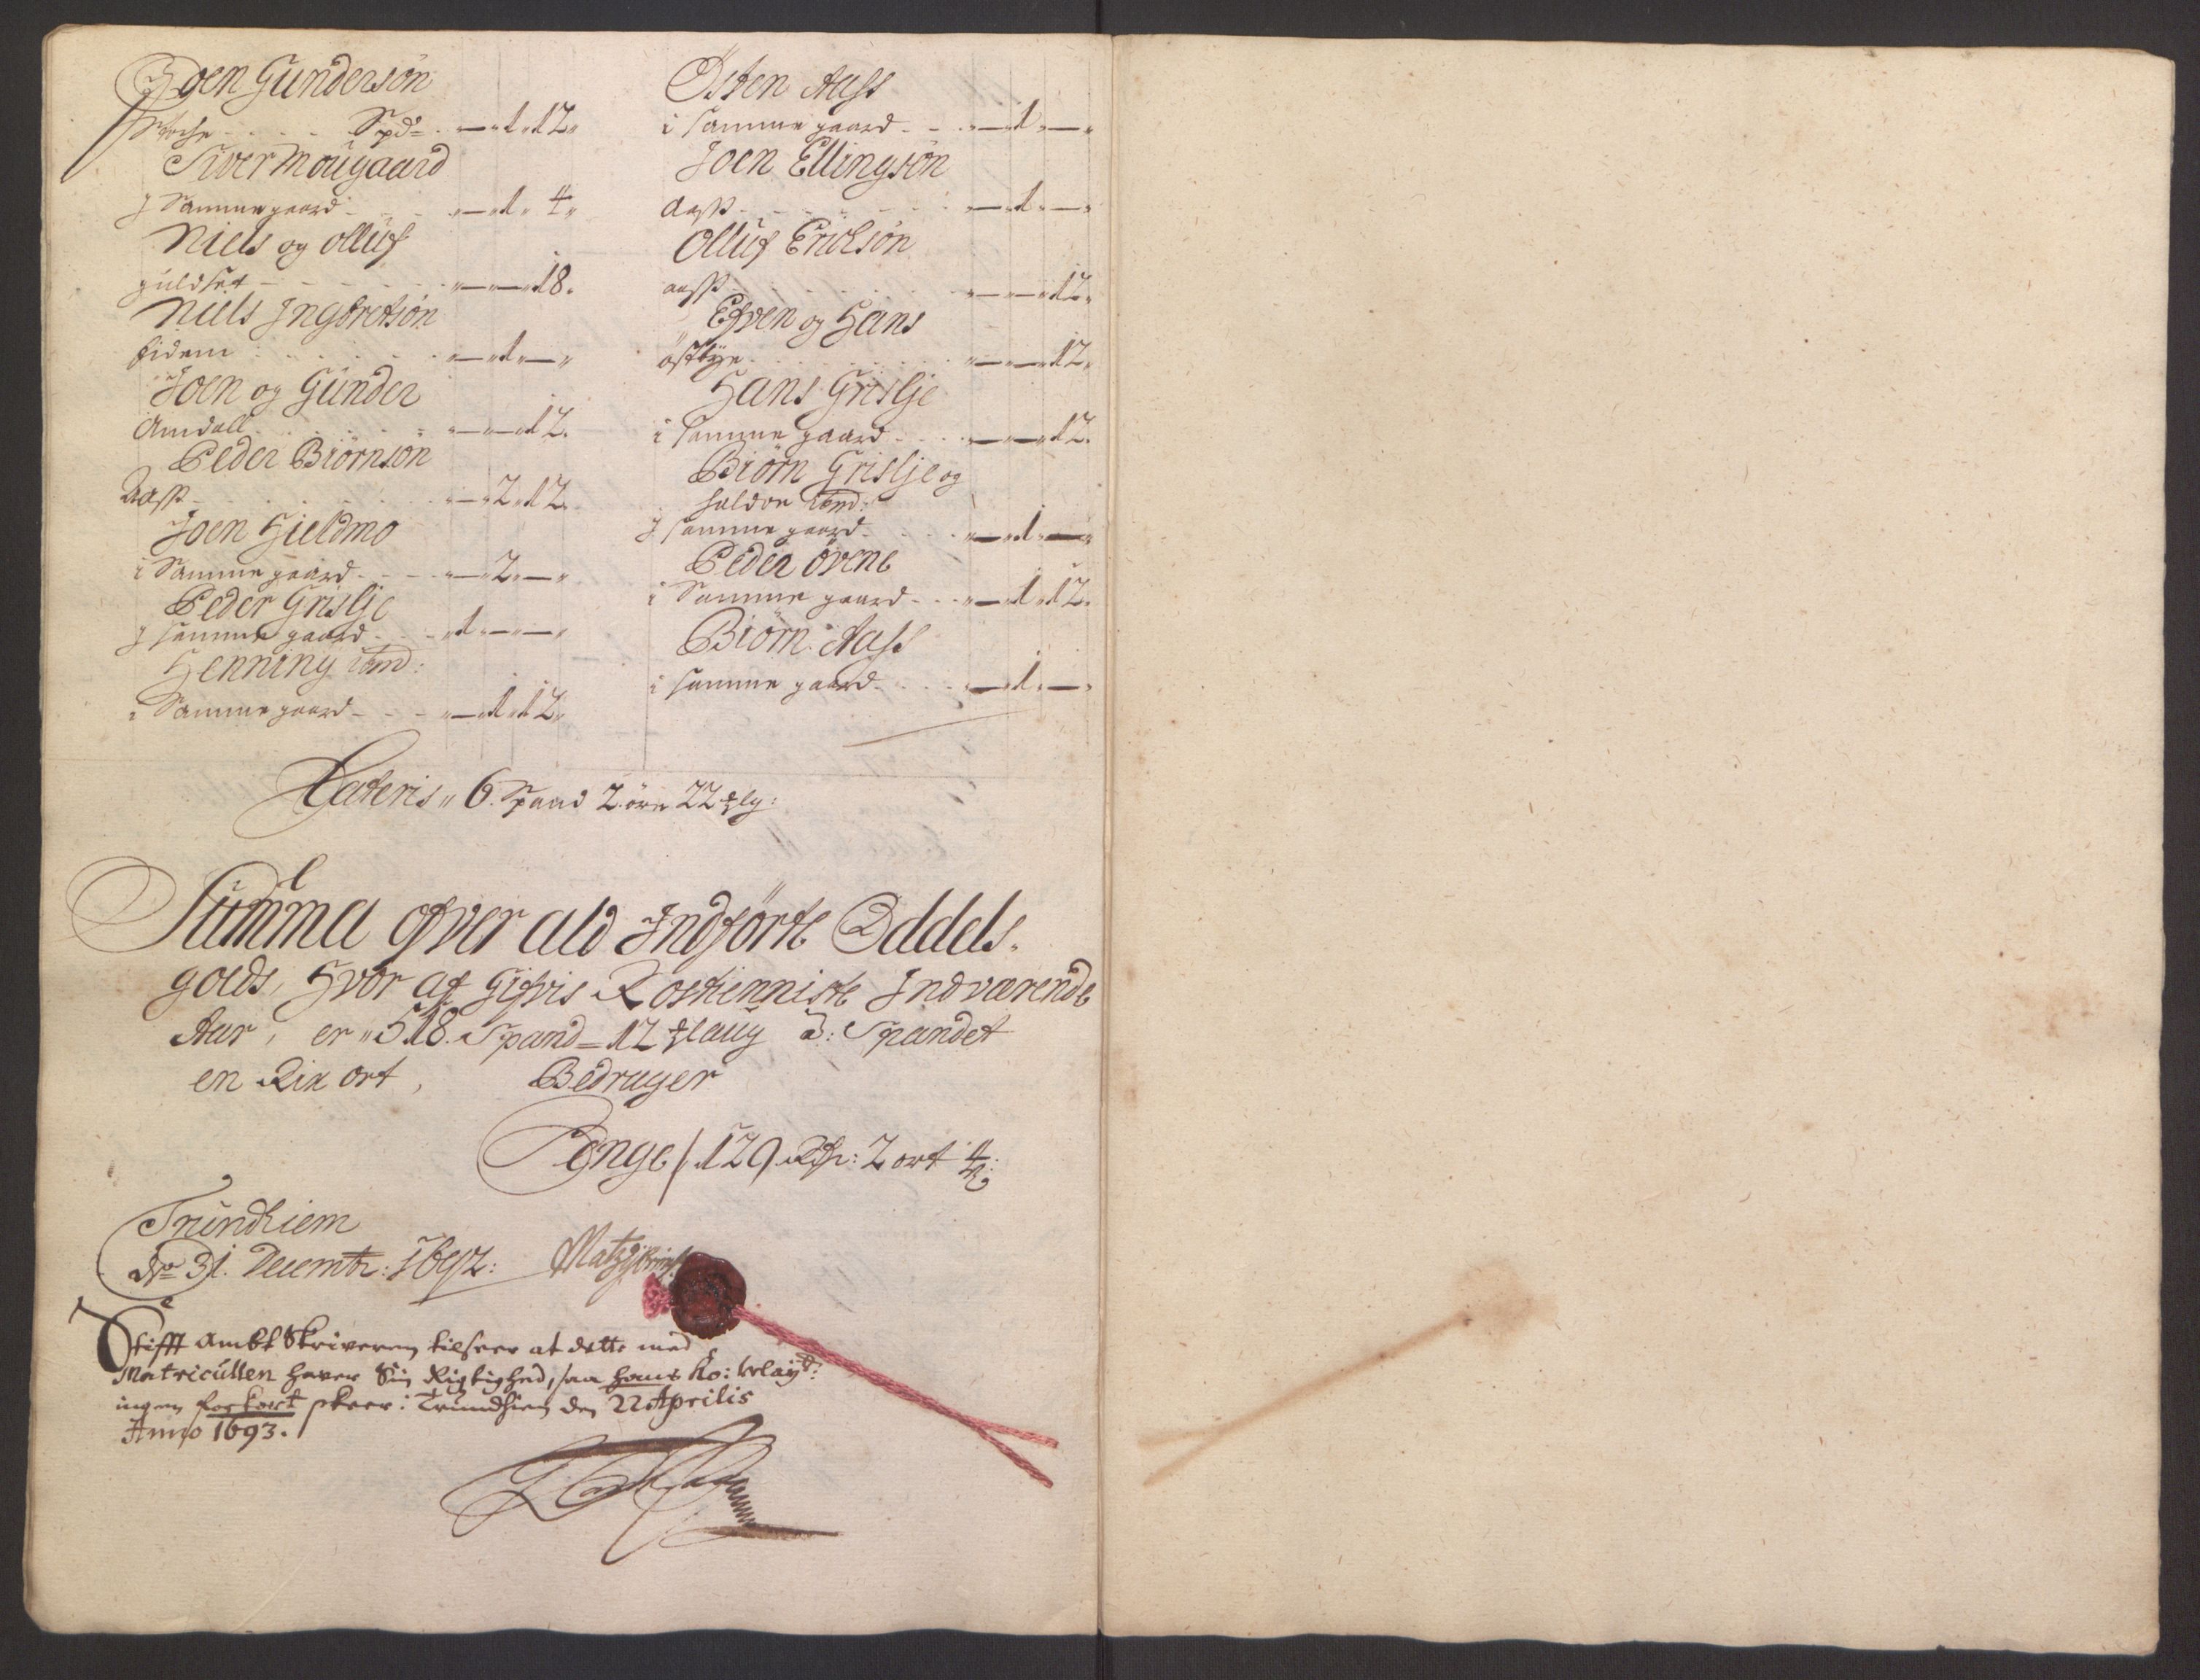 Joen Gundersøn
Spd - 1 - 12
Siver Mougaard
J Samme gaard - 1 - 4
Niels og olluf
guldset - 18
Niels Ingbretsøn
Eidem - 1 -
Joen og Gunder
Amdall - 12
Peder Biørnsøn
Aass - 2 - 12
Joen Hieldmo
i Samme gaard - 2 -
Peder Grislje
J samme gaard - 1 - -
Henning
i Samme gaard - 1 - 12
Østen Aass
i samme gaard - 1 -
Joen Ellingsøn
Aass - 1 -
Olluf Erichsøn
aass - 12
Efven og Hans
østbye - 12
Hans Grislje
i samme gaard - 12
Biørn Grislje og
haldor
J samme gaard - 1 -
Peder øvene
i Samme gaard - 1 - 12
Biørn Aass
i samme gaard - 1 -
Lateris 6. Spand 2. øre 22
Summa ofver ald Indførte Oddels
golds, Hvor af Gifvis Rostienniste Indværende
Aar, er 518. Spand - 12 laug a: Spandet
en Rix ort, Bedrager
Penge / 129 Rdr: 2 ort 4
Trundhiem
dn 31. Decembr: 1692:
Stifft Ambt Skriveren tilseer at dette med
Matricullen haver Sin Rigtighed, saa hans Ko: Mayt:
ingen forkort skeer: Trundhiem den 22 Aprilis
Anno 1693.